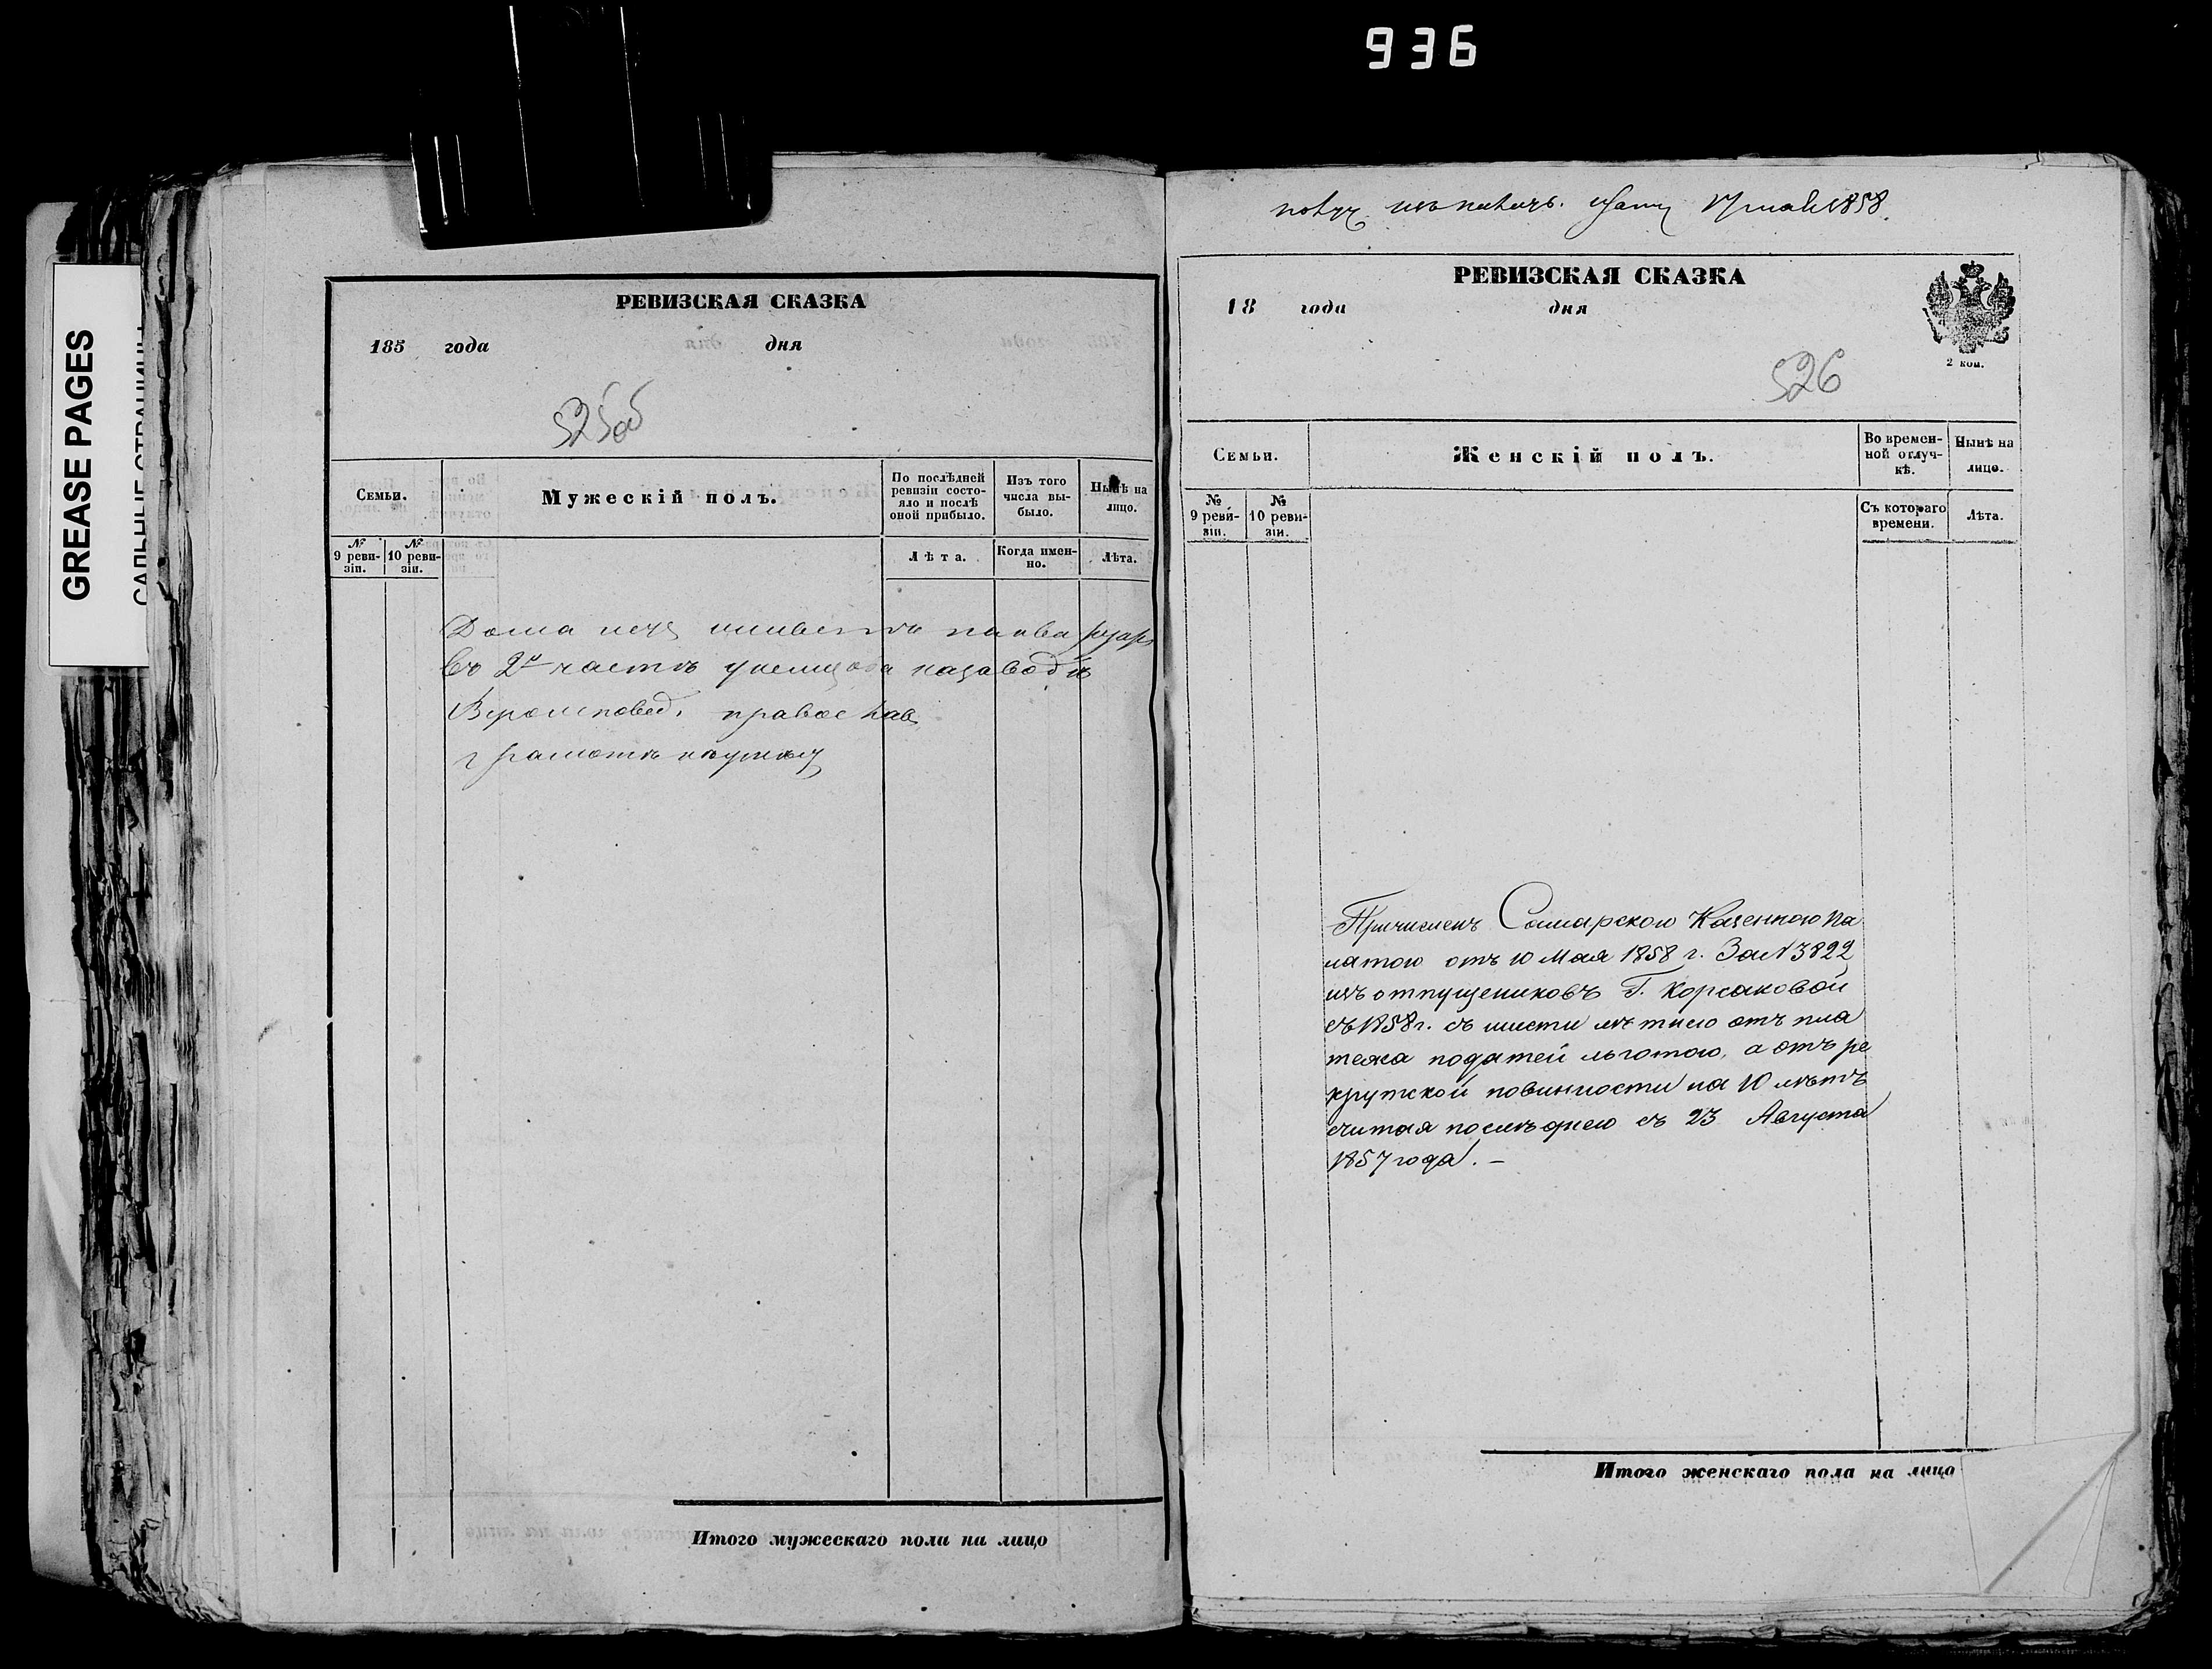 936
GREASE PAGES
САЛЬНЫЕ СТРАНИЦЫ
РЕВИЗСКАЯ СКАЗКА
185 года дня
525об
Семьи.
Мужескій полъ.
По послѣдней ревизіи состо-
яло и послѣ
оной прибыло.
Изъ того
числа вы-
было.
Нынѣ на
лицо.
№
9 реви-
зіи.
№
10 реви-
зіи.
Лѣта.
Когда имен-
но.
Лѣта.
Дома
въ 2й части
Вѣроисповед. православ
грамотѣ
Итого мужескаго пола на лицо
1858
РЕВИЗСКАЯ СКАЗКА
18 года дня
2 коп.
526
Семьи.
Женскій полъ.
Во времен-
ной отлуч-
кѣ.
Нынѣ на
лицо.
№
9 реви-
зіи.
№
10 реви-
зіи.
Съ котораго
времени.
Лѣта.
Причисленъ Самарскою Казенною Па
латою отъ 10 Мая 1858 г. За № 3822
изъ отпущениковъ Г. Корсаковой
съ 1858 г. съ шести лѣтнею отъ пла
тежа податей льготою, а отъ ре
крутской повинности на 10 лѣтъ
считая послѣднею съ 23 Августа
1857 года. –
Итого женскаго пола на лицо